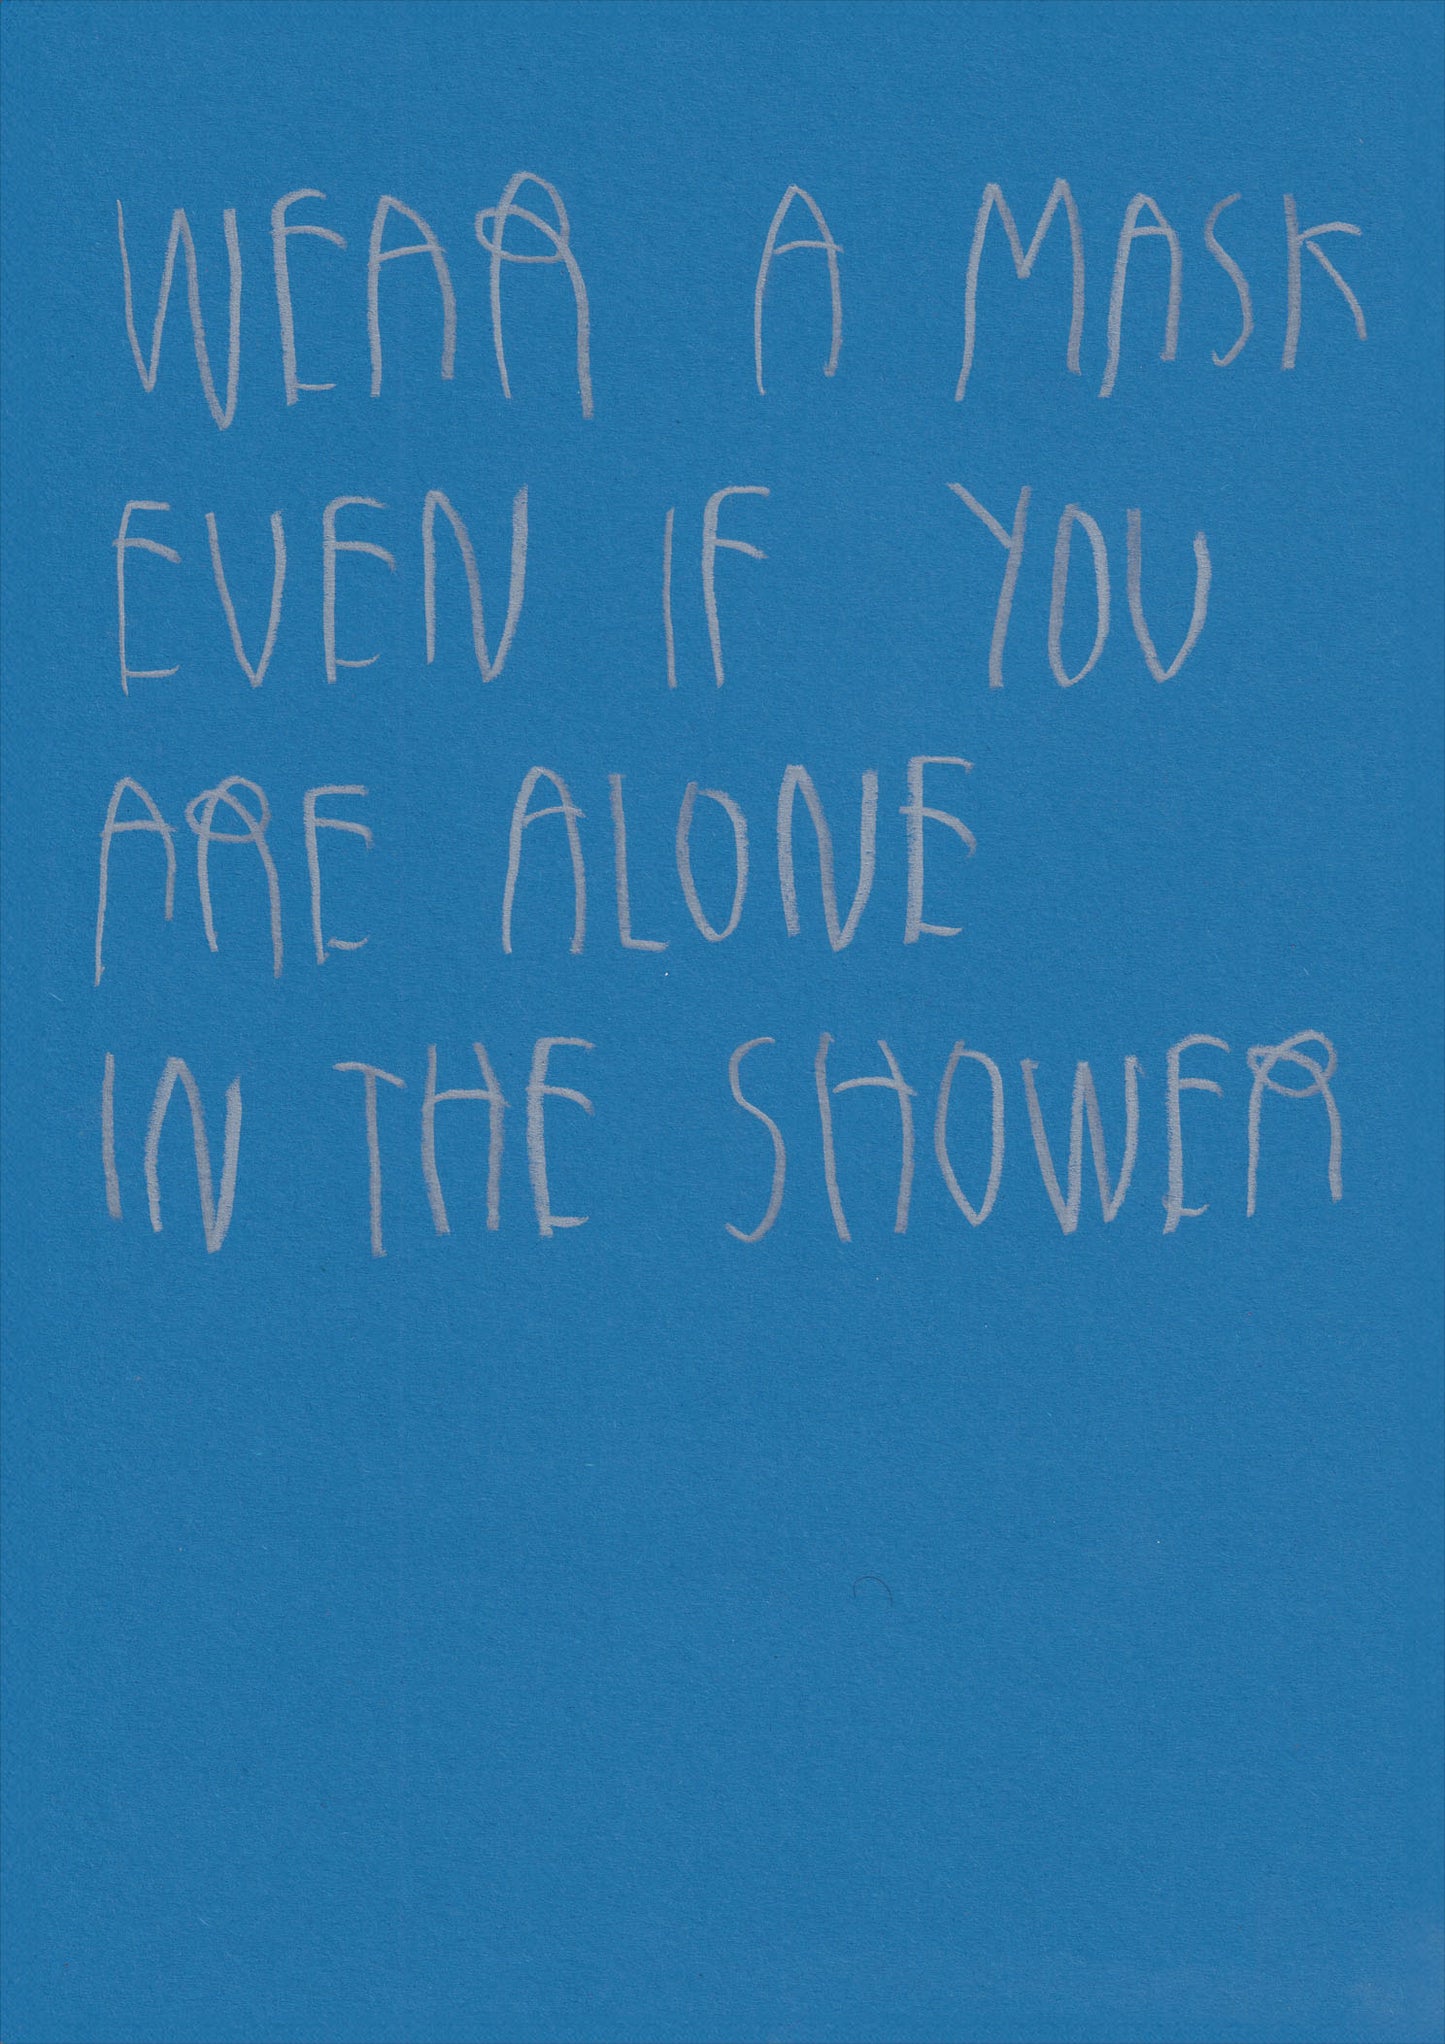 WEAR A MASK
EVEN IF YOU
ARE ALONE
IN THE SHOWER